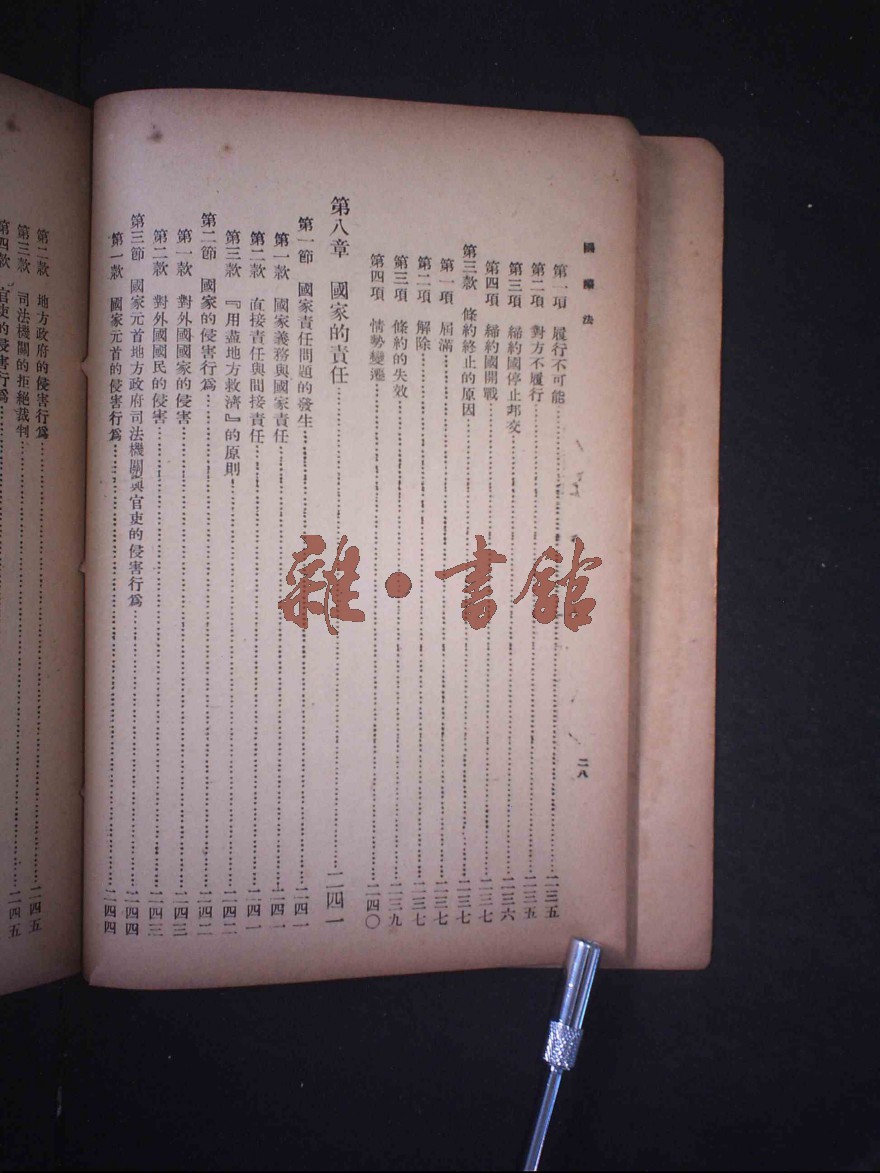 國際法
二八
第一項　履行不可能……二三五
第二項　對方不履行……二三五
第三項　締約國停止邦交……二三六
第四項　締約國開戰……二三七
第三款　條約終止的原因……二三七
第一項　屆滿……二三七
第二項　解除……二三七
第三項　條約的失效……二三九
第四項　情勢變遷……二四〇
第八章　國家的責任……二四一
第一節　國家責任問題的發生……二四一
第一款　國家義務與國家責任……二四一
第二款　直接責任與間接責任……二四一
第三款　『用盡地方救濟』的原則……二四二
第二節　國家的侵害行爲……二四二
第一款　對外國國家的侵害……二四三
第二款　對外國國民的侵害……二四三
第三節　國家元首地方政府司法機關與官吏的侵害行爲……二四四
第一款　國家元首的侵害行爲……二四四
第二款　地方政府的侵害行爲……二四五
第三款　司法機關的拒絕裁判……二四五
第四款　官吏的侵害行爲
雜·書館